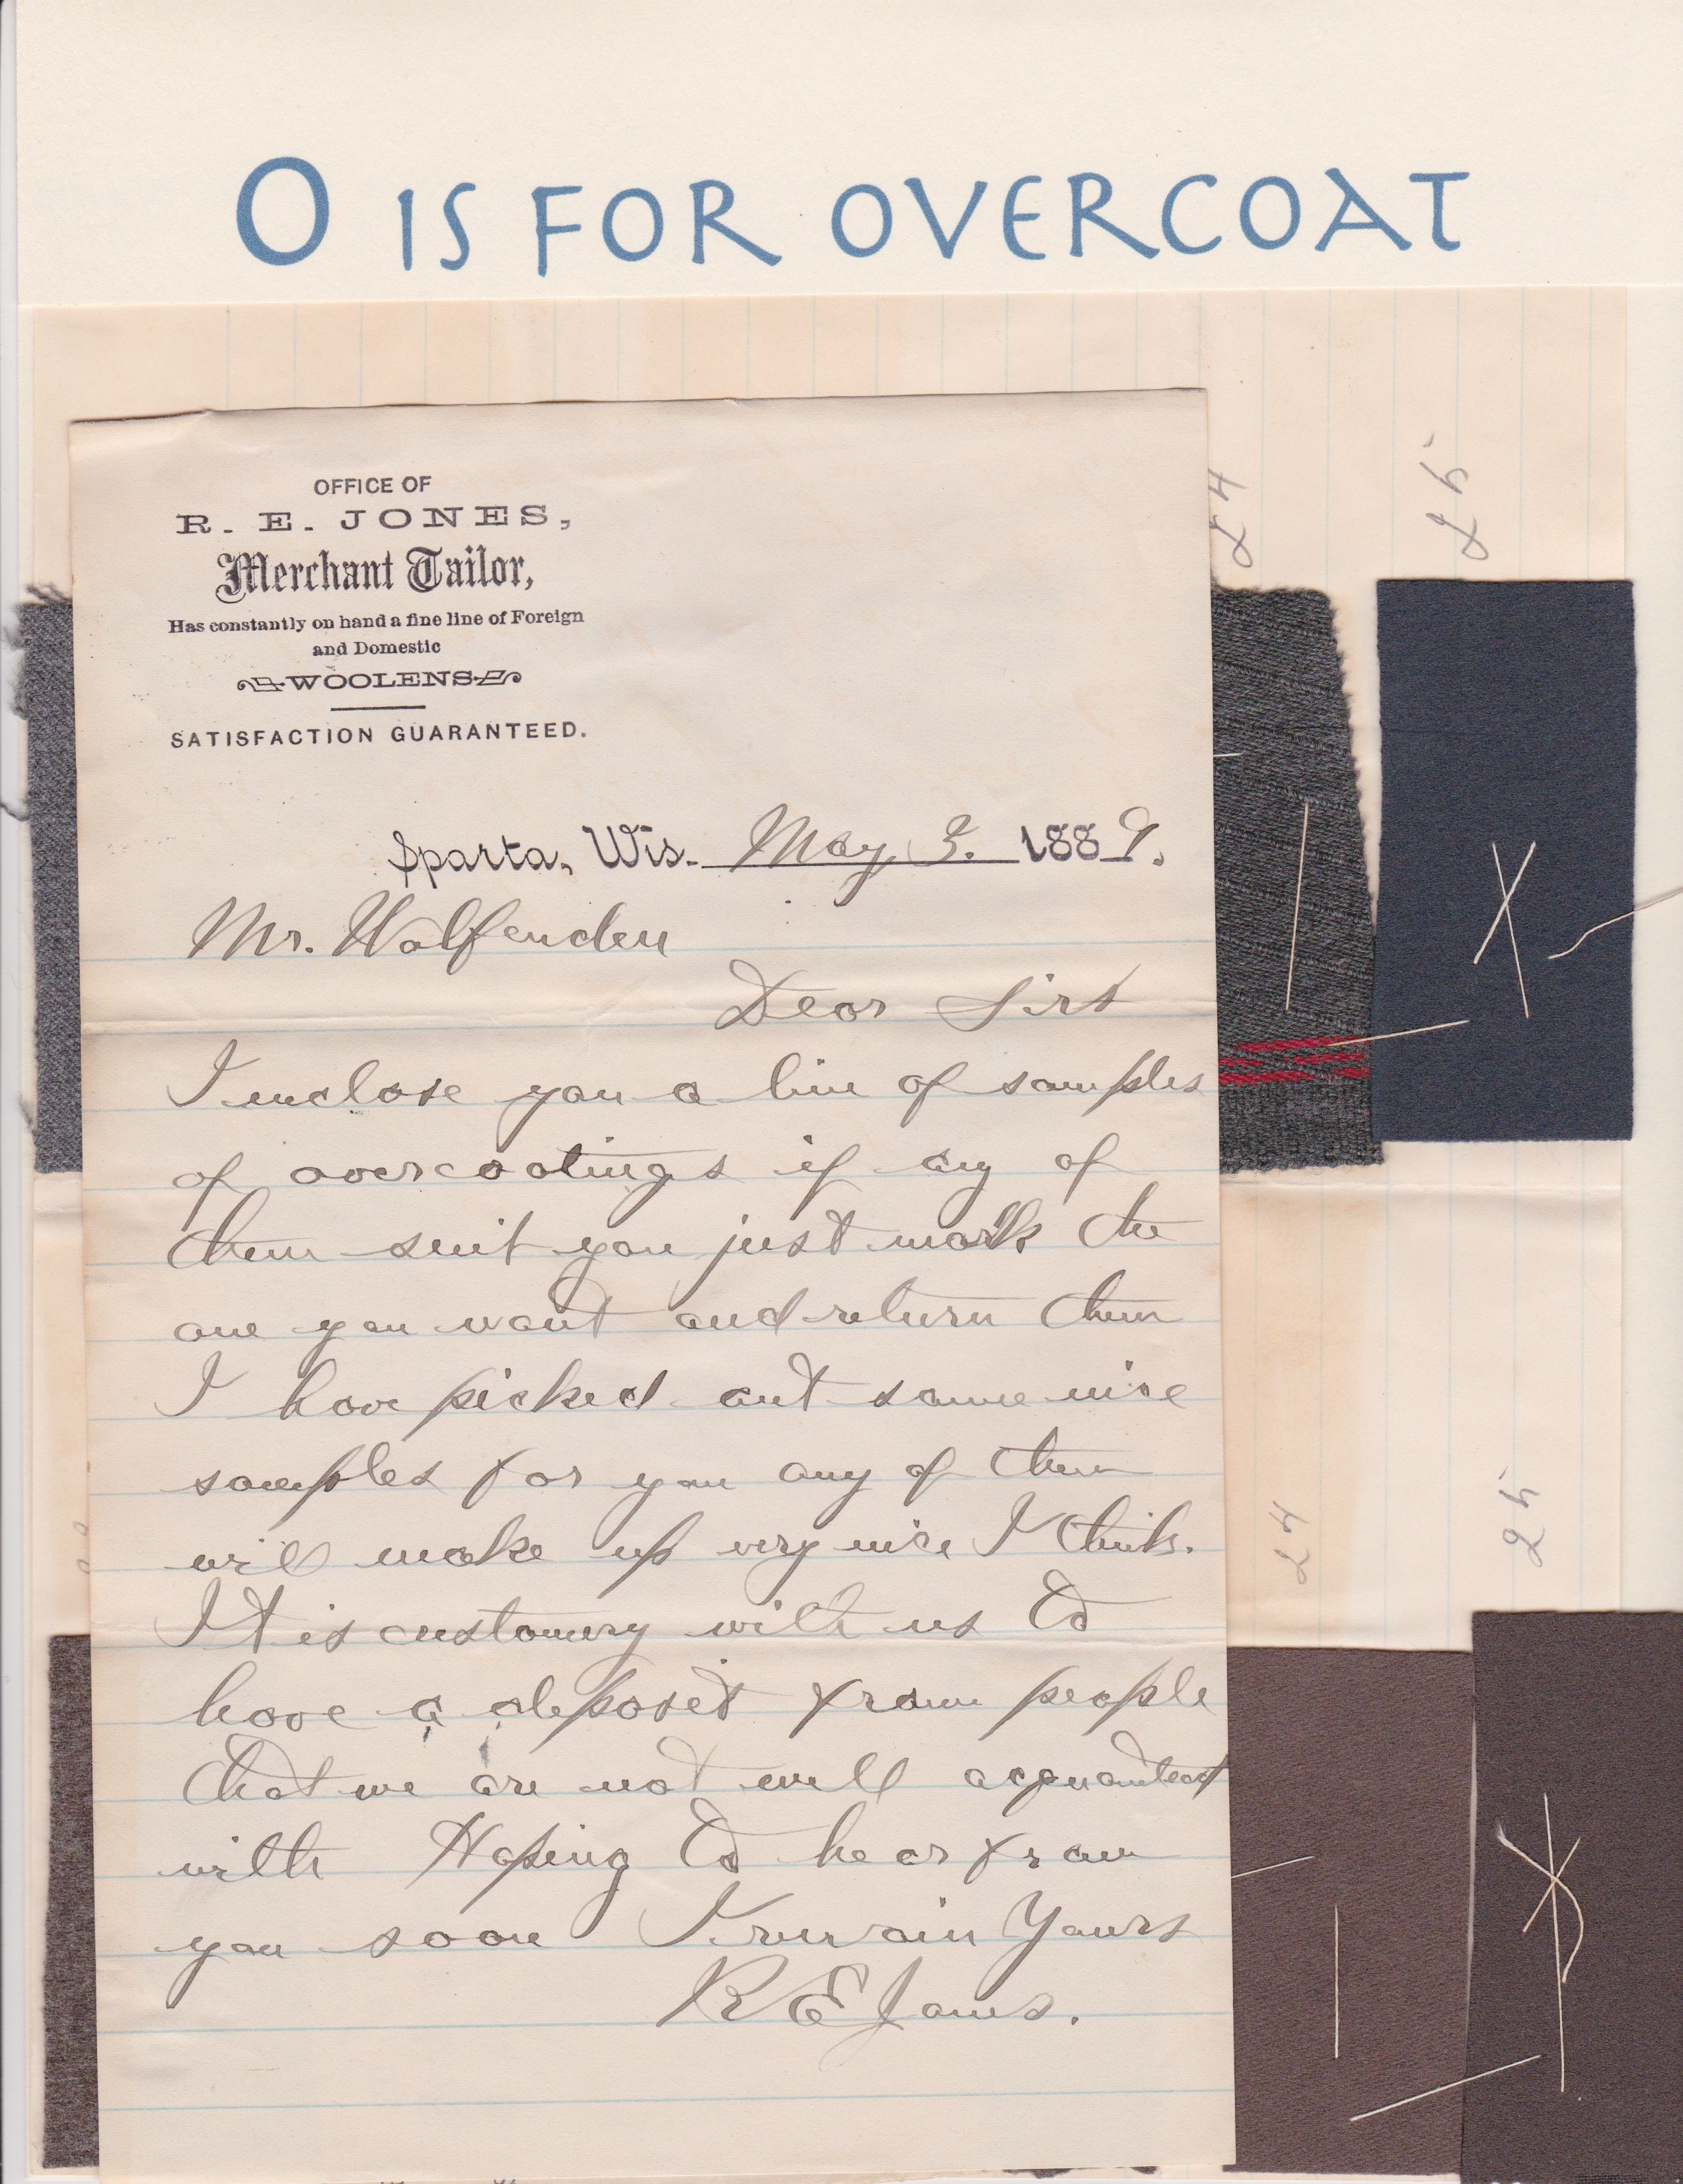 O IS FOR OVERCOAT
OFFICE OF
R. E. JONES,
Merchant Tailor,
Has constantly on hand a fine line of Foreign
and Domestic
WOOLENS
SATISFACTION GUARANTEED.
Sparta, Wis. May 3. 1889.
Mr. Wolfenden
Dear Sirs
I enclose you a line of samples
of overcoatings if any of
them suit you just mark the
one you want and return them
I have picked out some nice
samples for you any of them
will make up very nice I think.
It is customary with us to
have a deposit from people
that we are not well acquainted
with Hoping to hear from
you soon I remain Yours
R E Jones.
24
25
24
25